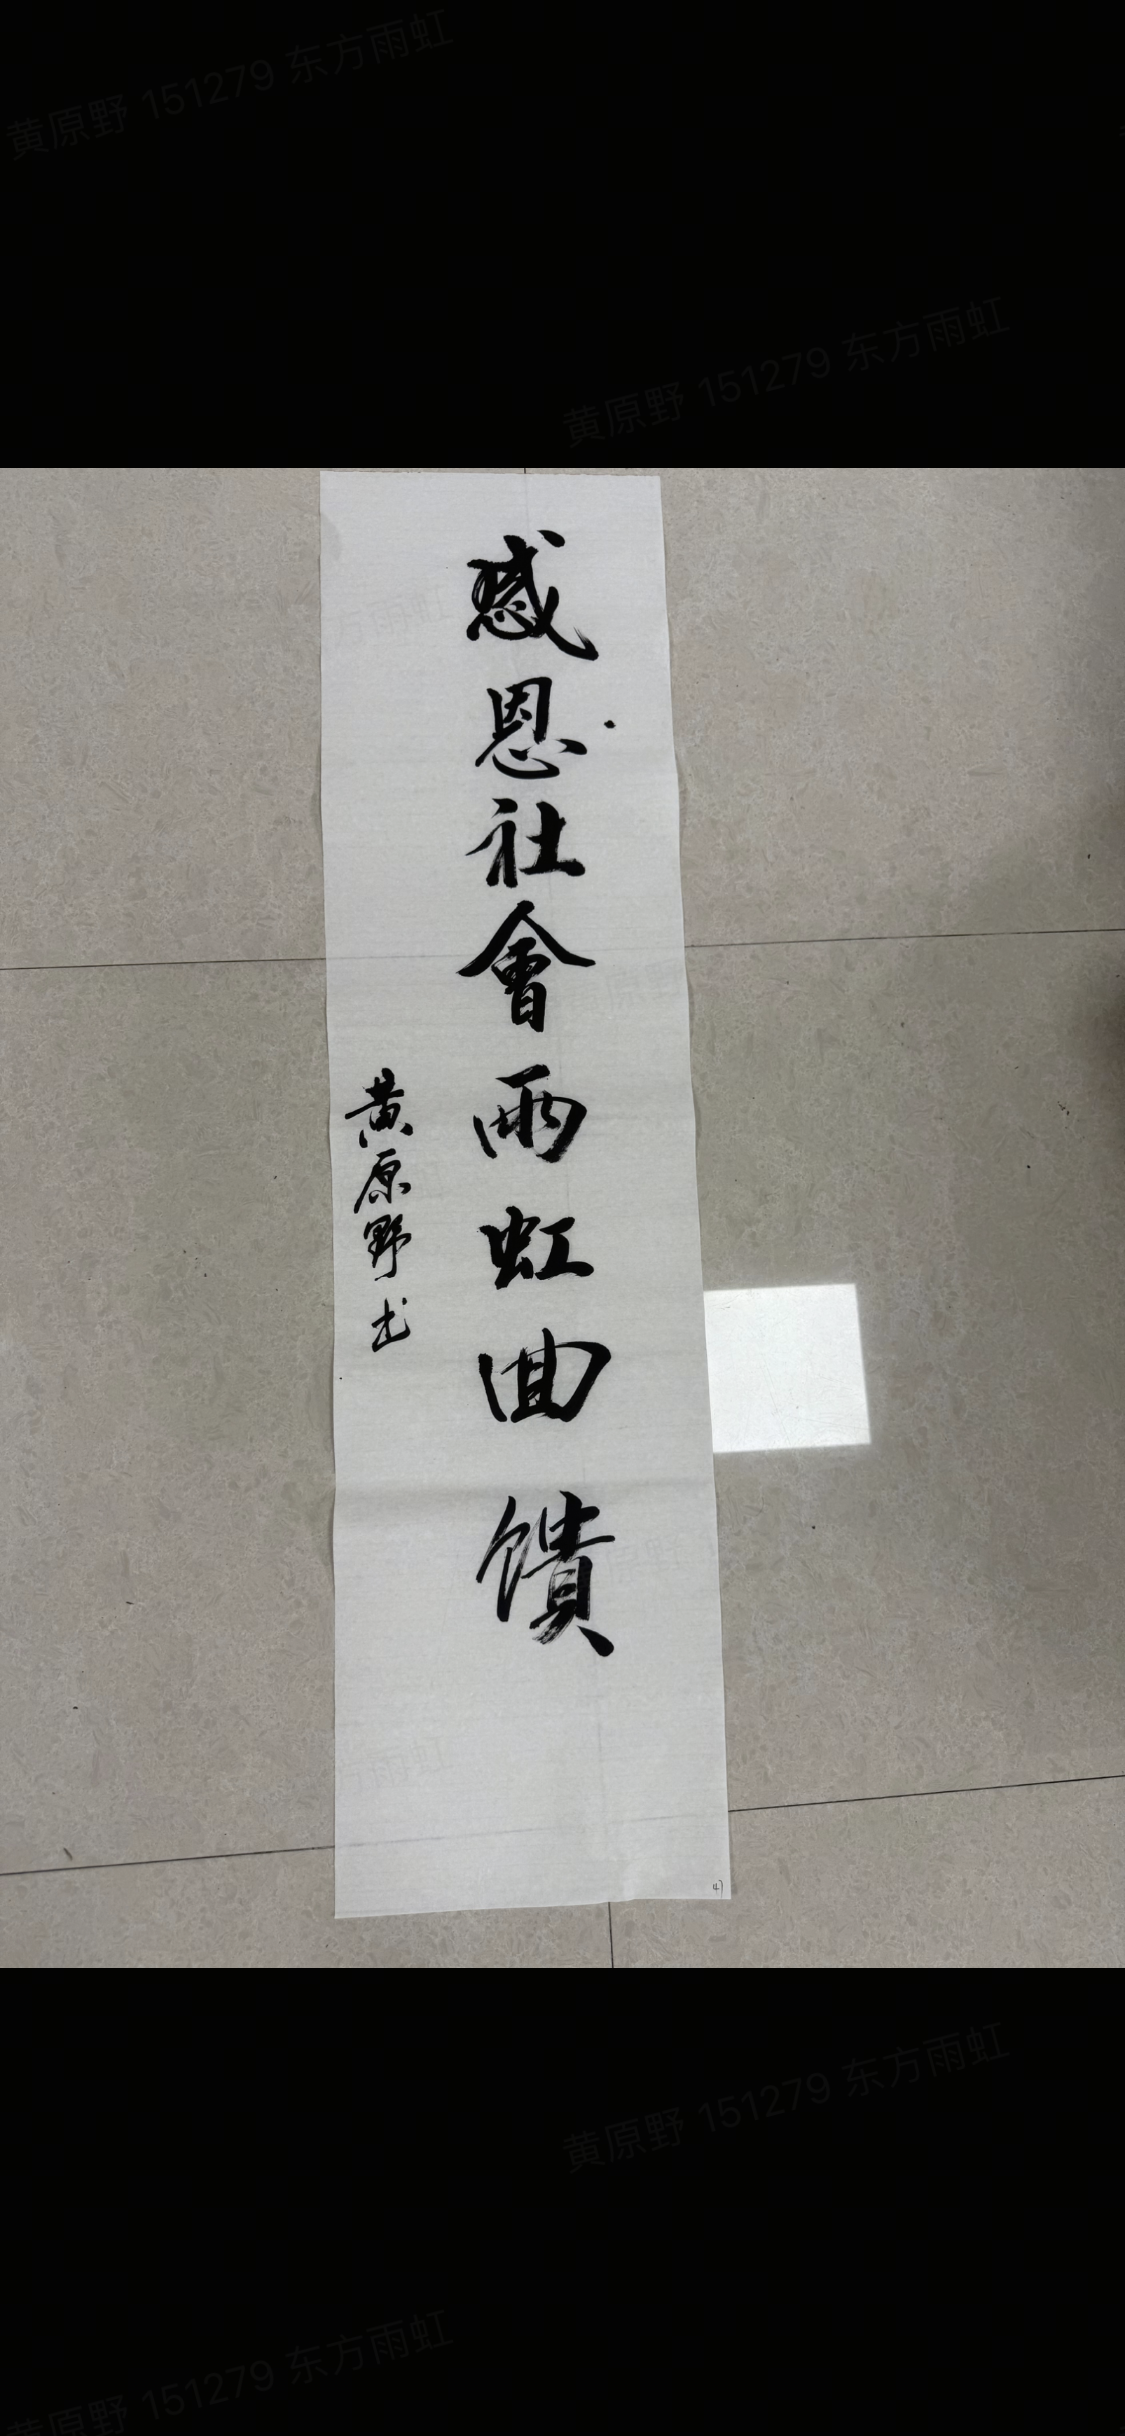 黄原野 151279 东方雨虹
黄原野 151279 东方雨虹
感恩社會雨虹回饋
黄原野书
47
黄原野 151279 东方雨虹
黄原野 151279 东方雨虹